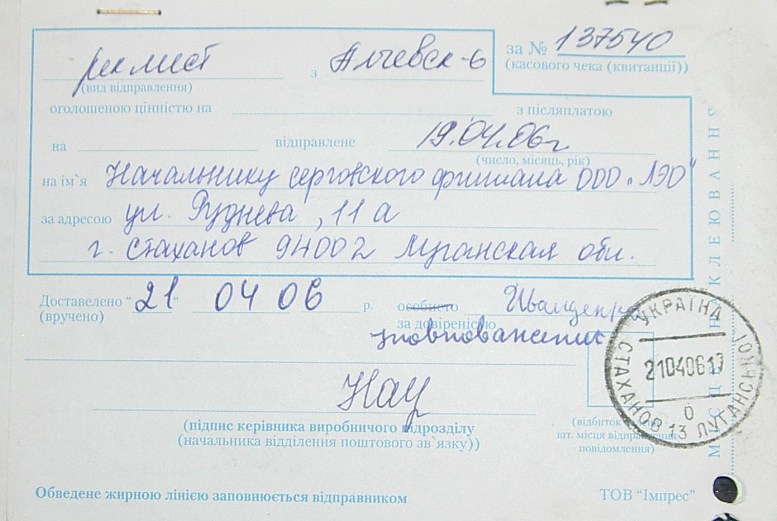 рек лист з Алчевск-6 за № 137540
(вид відправлення) (касового чека (квитанції))
оголошеною цінністю на з післяплатою
на відправлене 19.04.06г
(число, місяць, рік)
на ім`я Начальнику серговского филиала ООО "ЛЭО"
за адресою ул. Руднева, 11а
г. Стаханов 94002 Луганская обл.
Доставлено "21" 04 06 р. особисто Иващенко
(вручено) за довіреністю
уповноважений
(підпис керівника виробничого підрозділу
(начальника відділення поштового зв`язку))
(відбиток
шт. місця відправлення
повідомлення)
УКРАЇНА
СТАХАНОВ 13 ЛУГАНСЬКОЇ
21040617
О
Обведене жирною лінією заповнюється відправником ТОВ "Імпрес"